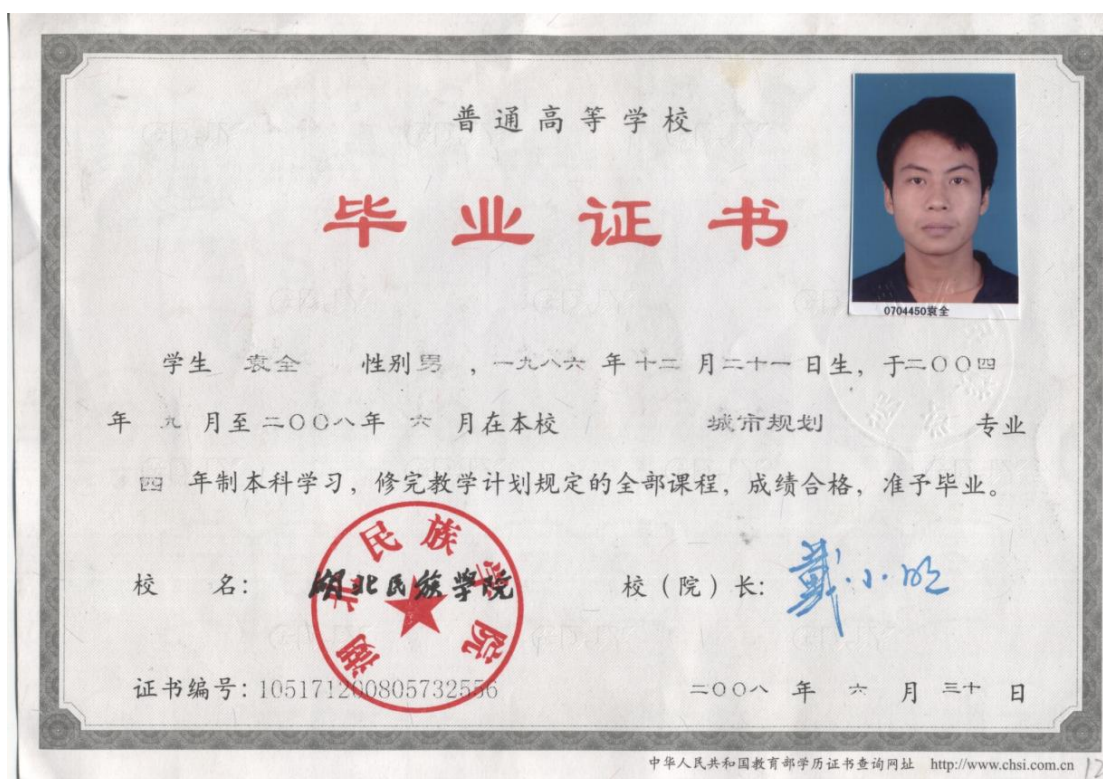 普通高等学校
毕业证书
0704450袁全
学生 袁全 性别 男 ，一九八六 年 十二 月二十一 日生，于二〇〇四
年 九 月至 二〇〇八年 六 月在本校 城市规划 专业
四 年制本科学习，修完教学计划规定的全部课程，成绩合格，准予毕业。
校 名： 湖北民族学院 校（院）长： 戴小明
湖北民族学院
证书编号：105171200805732556 二〇〇八 年 六 月 三十 日
中华人民共和国教育部学历证书查询网址 http://www.chsi.com.cn